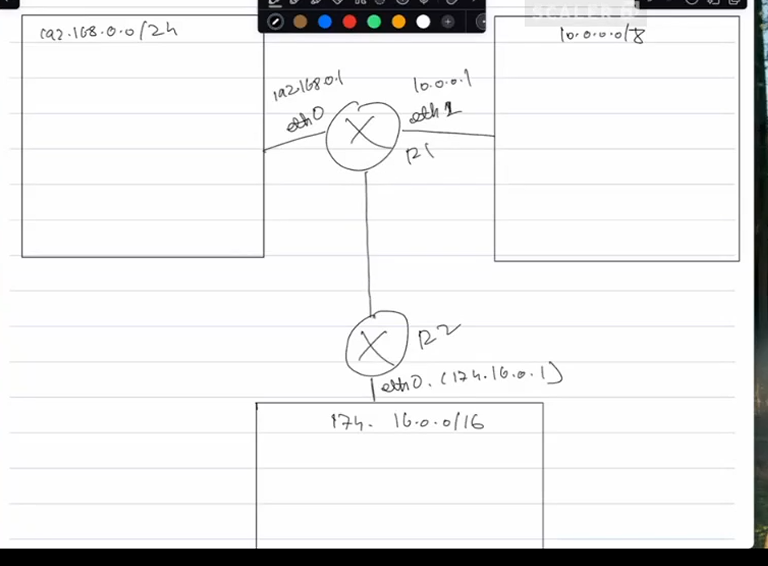 SCALER
192.168.0.0/24
10.0.0.0/8
192.168.0.1
10.0.0.1
eth0
eth1
R1
R2
eth0. (174.16.0.1)
174. 16.0.0/16